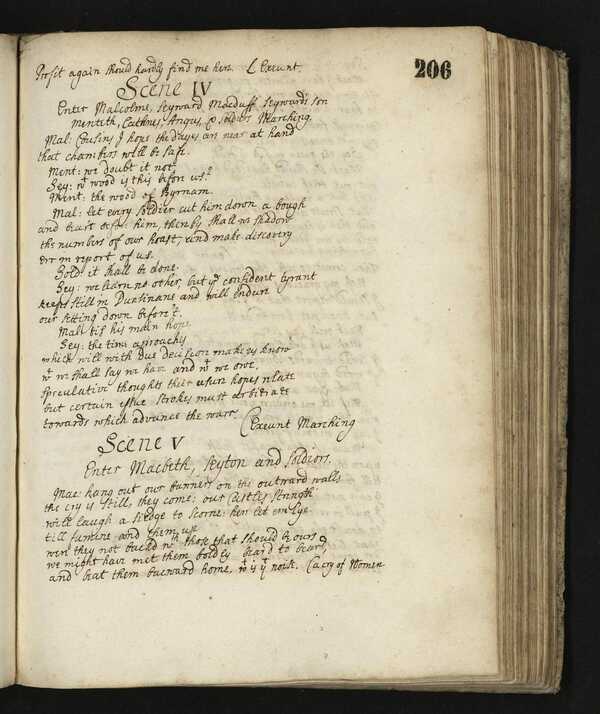 206
Profit again should hardly find me here. Exeunt.
Scene IV
Enter Malcolme, Seyward Macduff Seywards son
Menteth, Cathnes, Angus, & soldiers Marching.
Mal: Cousins I hope the dayes are near at hand
that chambers will be safe.
Ment: we doubt it not
Sey: wt wood is this before us?
Ment: the wood of Byrnam.
Mal: let every soldier cut him down a bough
and beart before him, thereby shall we shadow
the numbers of our hoast, and make discovery
err in report of us.
Sold: it shall be done.
Sey: we learn no other, but ye confident tyrant
keeps still in Dunsinane and will endure
our setting down before't.
Mal: tis his main hope
Sey: the time aproachs
which will with due decision make us know
wt we shall say we have and wt we owe.
speculative thoughts their unsure hopes relate
but certain issue strokes must arbitrate
towards which advance the warr
Exeunt Marching
Scene V
Enter Macbeth, Seyton and soldiors.
Mac: hang out our banners on the outward walls
the cry is still, they come: our Castles strength
will laugh a siedge to scorne: here let em lye
till famine and them up
were they not backd wth those that should be ours
we might have met them boldly beard to beard
and beat them bacward home. wt is ye noise. (a cry of Women